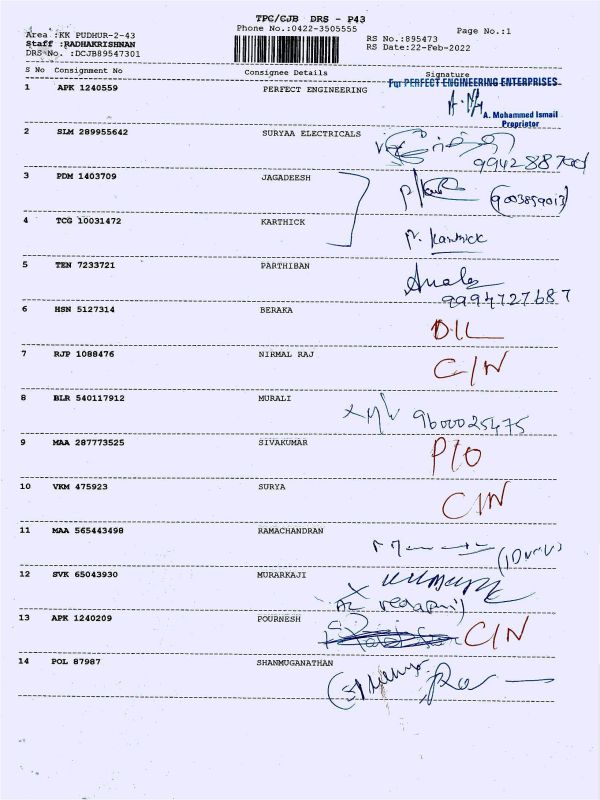 TPC/CJB DRS - P43
Phone No.:0422-3505555
Page No.:1
Area :KK PUDHUR-2-43
RS No.:895473
Staff :RADHAKRISHNAN
RS Date:22-Feb-2022
DRS No. :DCJB89547301
S No Consignment No Consignee Details Signature
For PERFECT ENGINEERING ENTERPRISES
1 APK 1240559 PERFECT ENGINEERING
A. Mohammed Ismail
Proprietor
2 SLM 289955642 SURYAA ELECTRICALS
3 PDM 1403709 JAGADEESH
(9003859013)
4 TCG 10031472 KARTHICK
P. Karthick
5 TEN 7233721 PARTHIBAN
9994727687
6 HSN 5127314 BERAKA
D/L
7 RJP 1088476 NIRMAL RAJ
C/N
8 BLR 540117912 MURALI
9600025475
9 MAA 287773525 SIVAKUMAR
P/O
10 VKM 475923 SURYA
C/N
11 MAA 565443498 RAMACHANDRAN
12 SVK 65043930 MURARKAJI
13 APK 1240209 POURNESH C/N
14 POL 87987 SHANMUGANATHAN